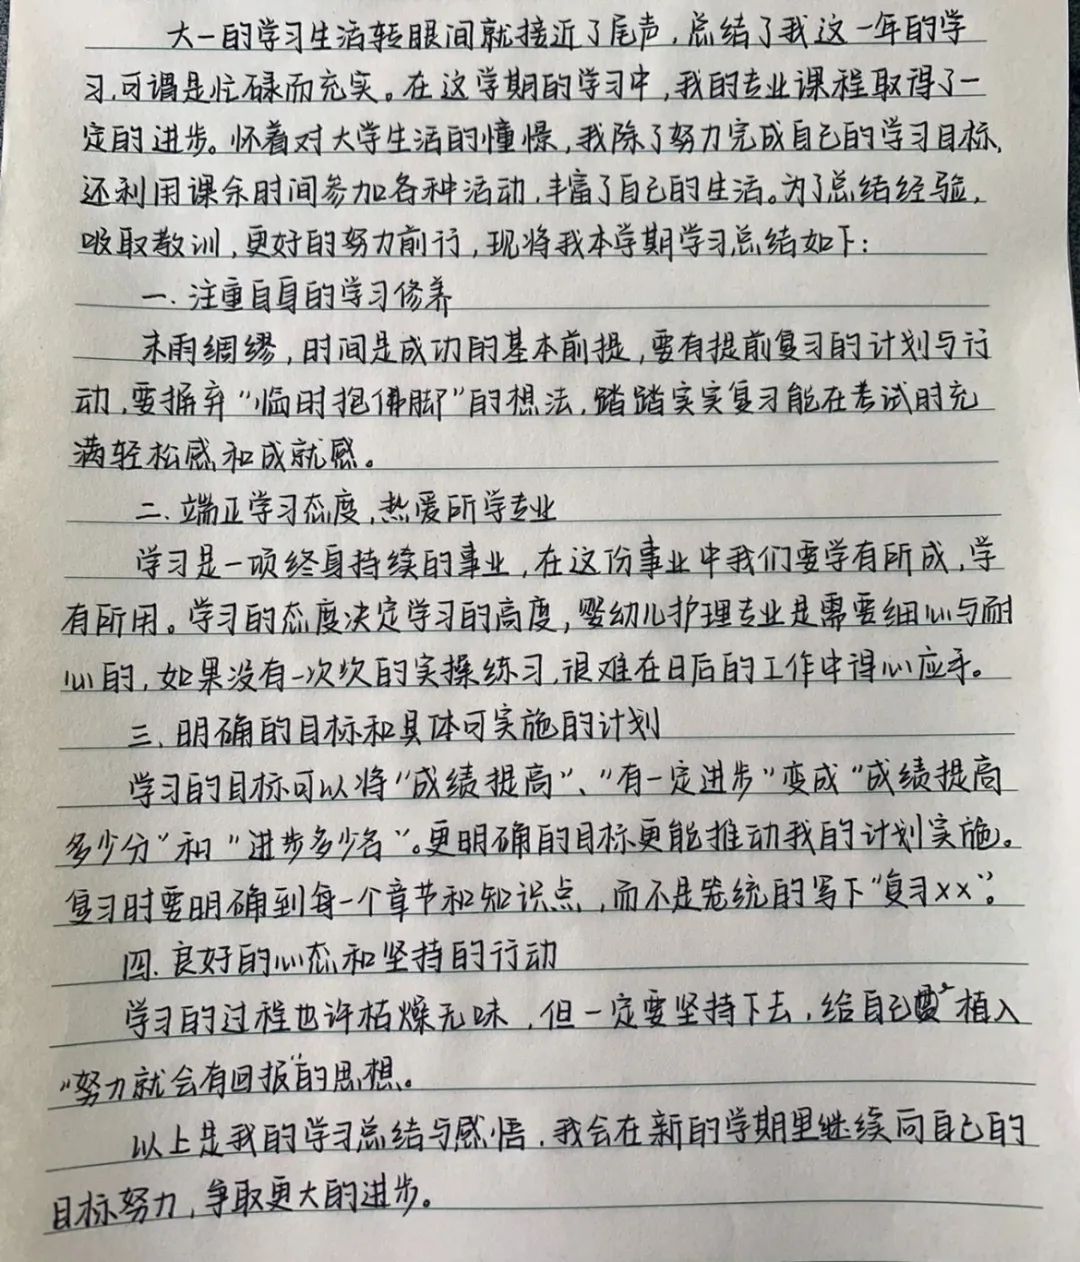 大一的学习生活转眼间就接近了尾声，总结了我这一年的学
习，可谓是忙碌而充实。在这学期的学习中，我的专业课程取得了一
定的进步。怀着对大学生活的憧憬，我除了努力完成自己的学习目标，
还利用课余时间参加各种活动，丰富了自己的生活。为了总结经验，
吸取教训，更好的努力前行，现将我本学期学习总结如下：
一、注重自身的学习修养
未雨绸缪，时间是成功的基本前提，要有提前复习的计划与行
动，要摒弃“临时抱佛脚”的想法，踏踏实实复习能在考试时充
满轻松感和成就感。
二、端正学习态度，热爱所学专业
学习是一项终身持续的事业，在这份事业中我们要学有所成，学
有所用。学习的态度决定学习的高度，婴幼儿护理专业是需要细心与耐
心的，如果没有一次次的实操练习，很难在日后的工作中得心应手。
三、明确的目标和具体可实施的计划
学习的目标可以将“成绩提高”、“有一定进步”变成“成绩提高
多少分”和“进步多少名”。更明确的目标更能推动我的计划实施。
复习时要明确到每一个章节和知识点，而不是笼统的写下“复习××”。
四、良好的心态和坚持的行动
学习的过程也许枯燥无味，但一定要坚持下去，给自己植入
“努力就会有回报”的思想。
以上是我的学习总结与感悟，我会在新的学期里继续向自己的
目标努力，争取更大的进步。